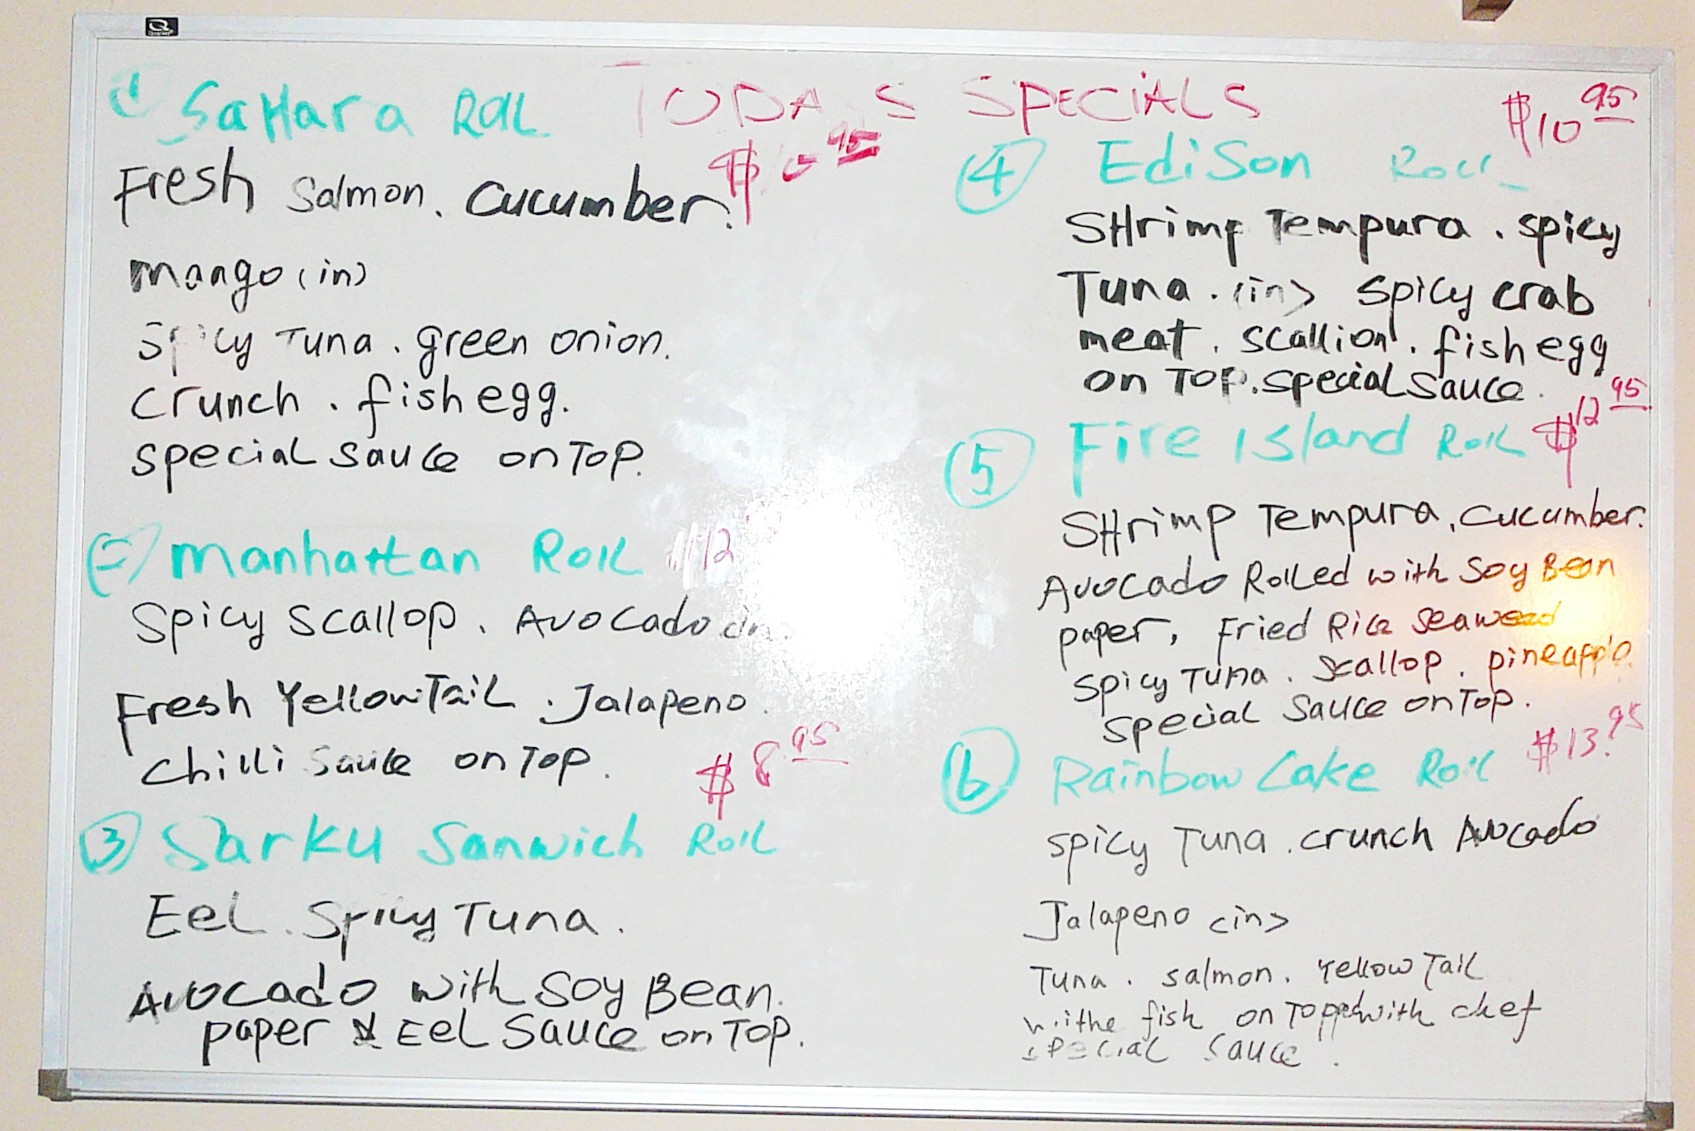 TODA S SPECIALS
1 SaHara Roll
Fresh Salmon. Cucumber.
mango (in)
Spicy Tuna. green onion.
crunch. fish egg.
special sauce on Top.
Manhattan Roll $12
Spicy Scallop. Avocado (in)
Fresh YellowTail. Jalapeno.
Chilli Sauce on Top.
$8 95
3 Sarku Sanwich Roll
Eel. Spicy Tuna.
Avocado with Soy Bean.
paper & Eel Sauce on Top.
$10 95
4 Edison Roll
SHrimp Tempura. spicy
Tuna. (in) spicy crab
meat. scallion. fish egg
on Top. special Sauce.
5 Fire Island Roll $12 95
SHrimp Tempura, cucumber.
Avocado Rolled with Soy Bean
paper, Fried Rice Seaweed
Spicy Tuna. Scallop. pineapple.
Special Sauce on Top.
6 Rainbow Cake Roll $13.95
Spicy Tuna. crunch Avocado
Jalapeno (in)
Tuna. salmon. Yellow Tail
withe fish on Topped with chef
special sauce.